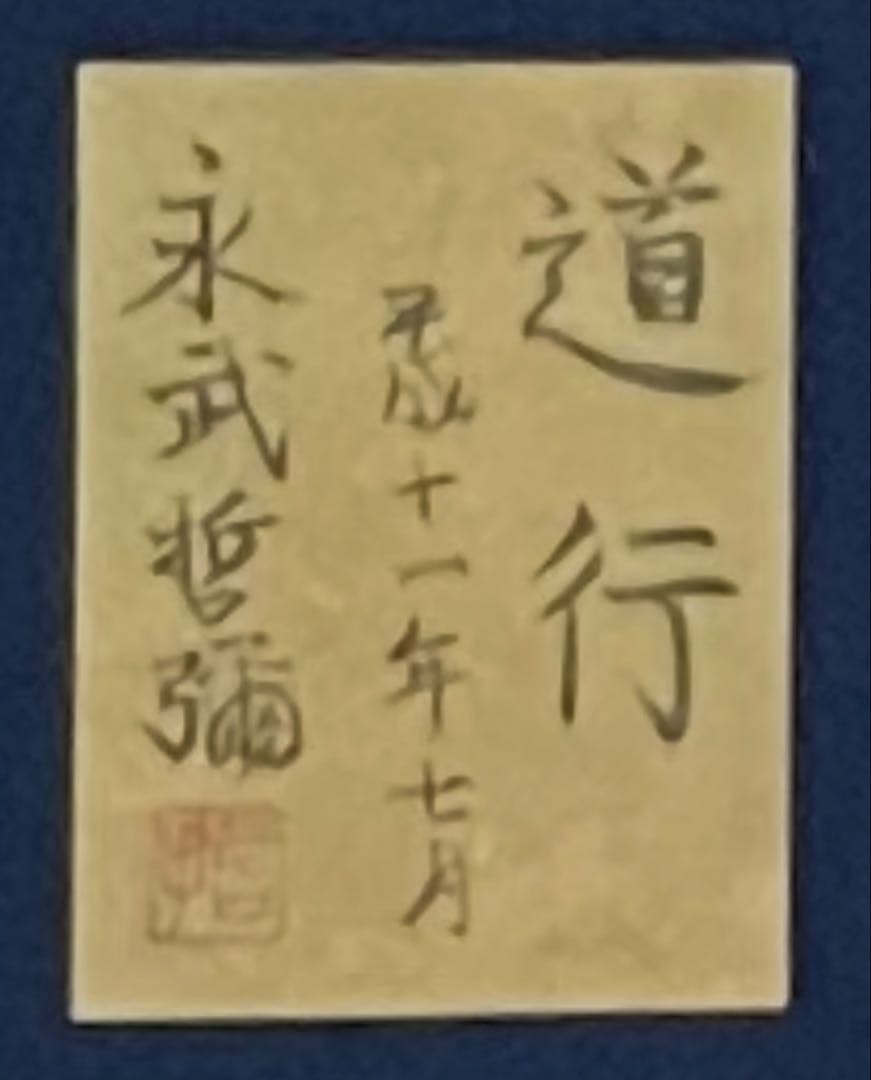 道行
平成十一年七月
永武哲彌